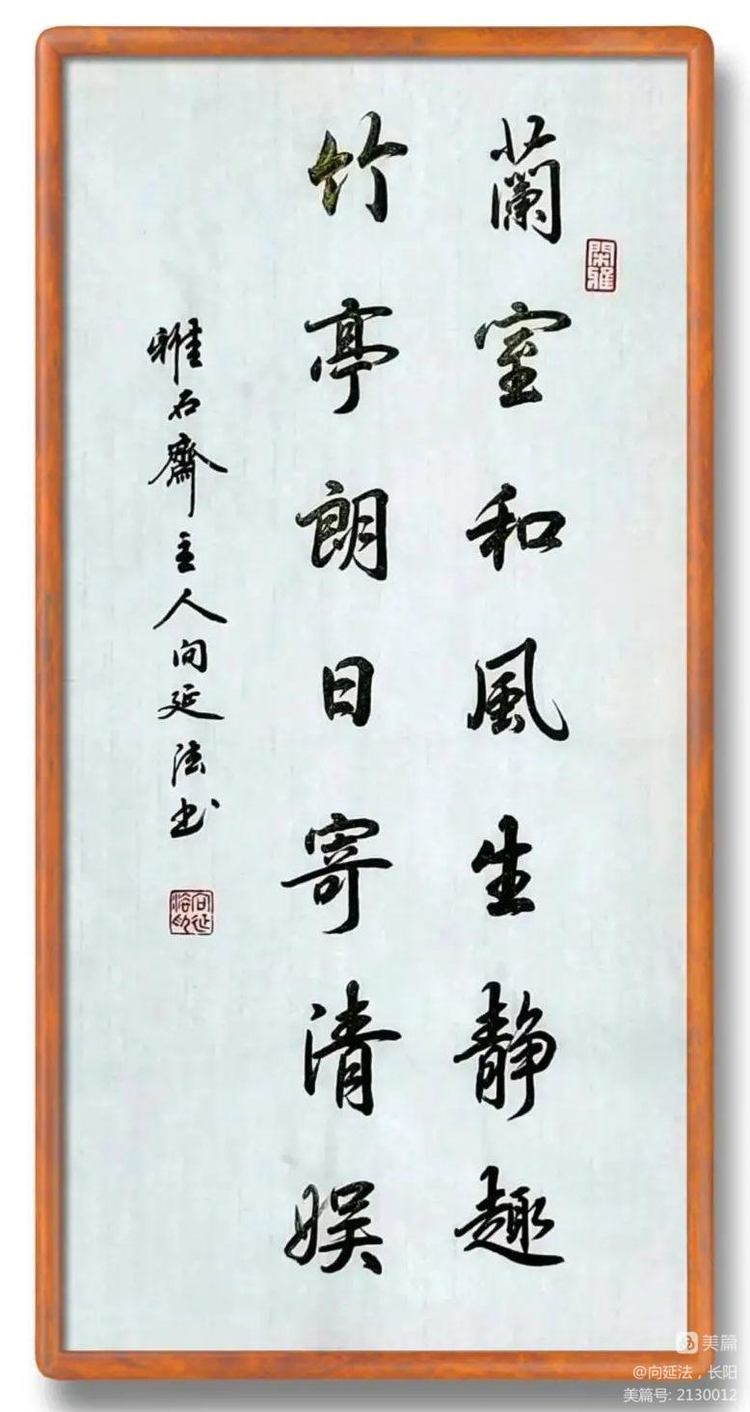 蘭室和風生静趣
竹亭朗日寄清娱
雅石齋主人向延法书
閑雅
向延法印
美篇
@向延法，长阳
美篇号: 2130012